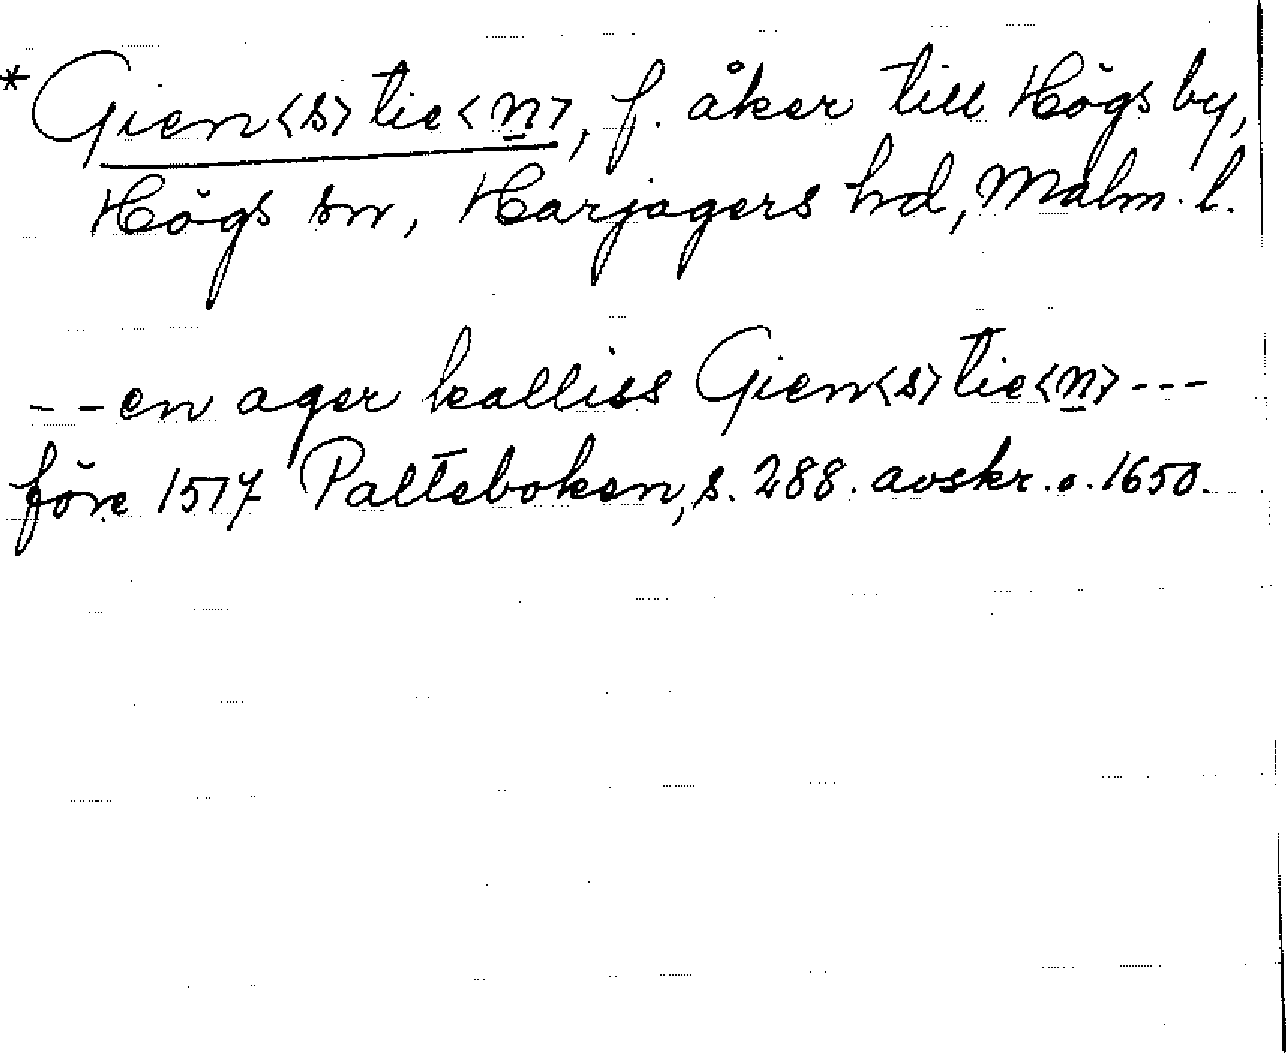 *Gien<s>tie<n>, f. åker till Högs by,
Högs sn, Harjagers hd, Malm. l.
- - en ager kalliss Gien<s>tie<n> - - -
före 1517 Palteboken, s. 288. avskr. o. 1650.